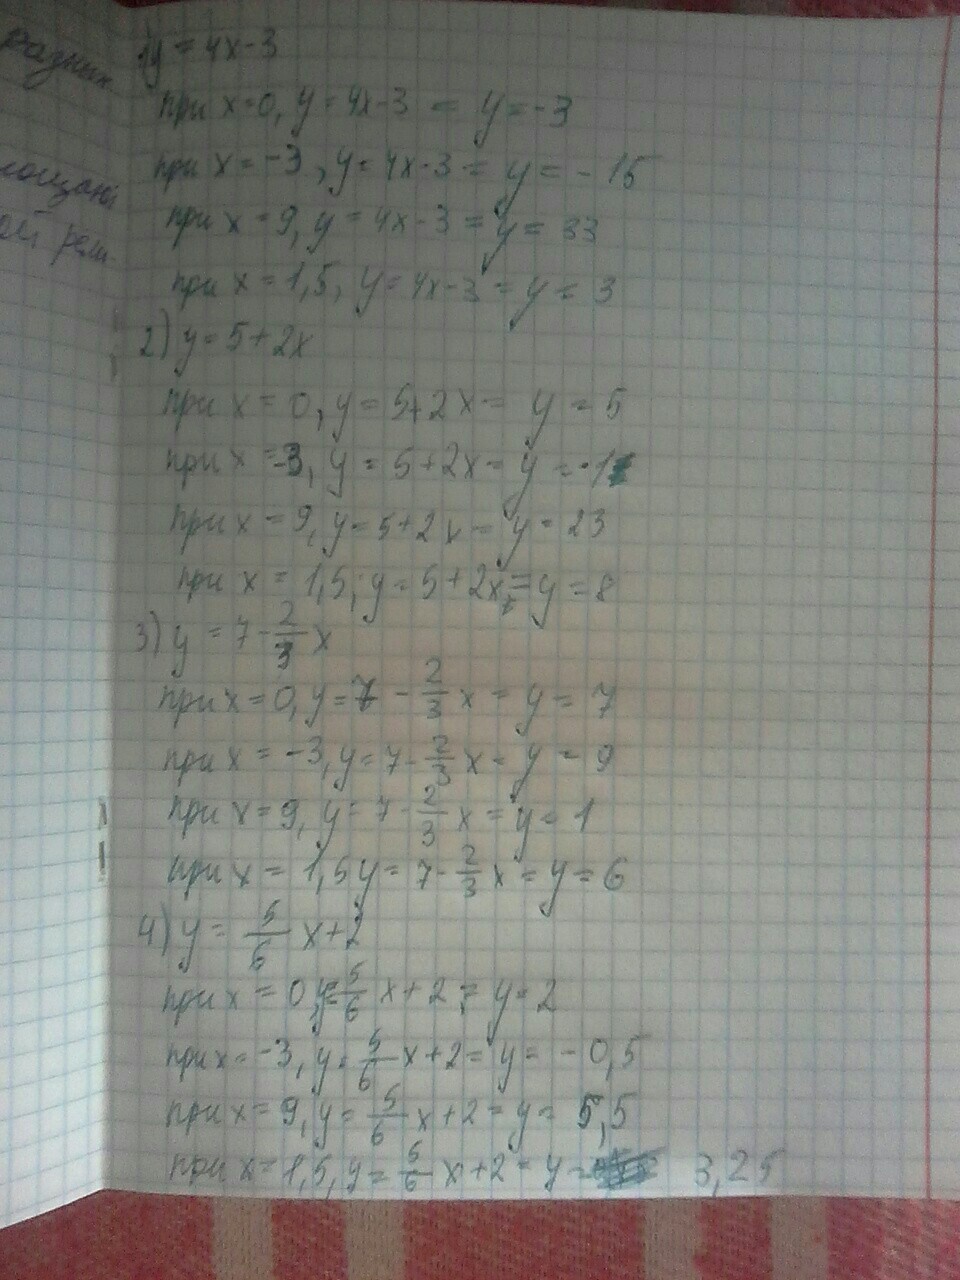 разных
1) y = 4x - 3
при x=0, y = 4x-3 = y = -3
при x = -3, y = 4x-3 = y = -15
при x = 9, y = 4x-3 = y = 33
при x = 1,5, y = 4x-3 = y = 3
2) y = 5+2x
при x = 0, y = 5+2x = y = 5
при x = -3, y = 5+2x = y = -1
при x = 9, y = 5+2x = y = 23
при x = 1,5, y = 5+2x = y = 8
3) y = 7 - 2/3 x
при x = 0, y = 7 - 2/3 x = y = 7
при x = -3, y = 7 - 2/3 x = y = 9
при x = 9, y = 7 - 2/3 x = y = 1
при x = 1,5 y = 7 - 2/3 x = y = 6
4) y = 5/6 x + 2
при x = 0, y = 5/6 x + 2 = y = 2
при x = -3, y = 5/6 x + 2 = y = -0,5
при x = 9, y = 5/6 x + 2 = y = 5,5
при x = 1,5, y = 5/6 x + 2 = y = 3,25